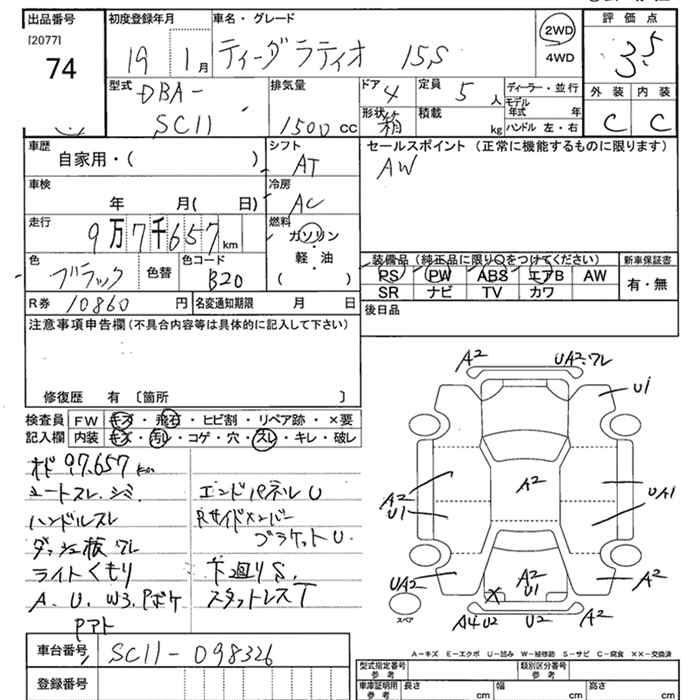 出品番号 初度登録年月 車名・グレード 評価点
[2077]
74 19 1月 ティーダラティオ 15S 2WD 3.5
4WD
型式 排気量 ドア 定員 ディーラー・並行 外装 内装
DBA- 4 5人 モデル年式 年
SC11 1500cc 形状 箱 積載 kg ハンドル 左・右 C C
車歴 シフト セールスポイント(正常に機能するものに限ります)
自家用・( ) AT AW
車検 冷房
年 月( 日) AC
走行 燃料
9万7千657km ガソリン
軽・油
( )
色 色コード 装備品(純正品に限り○をつけてください) 新車保証書
ブラック 色替 B20 PS PW ABS エアB AW 有・無
SR ナビ TV カワ
R券 10860円 名変通知期限 月 日 後日品
注意事項申告欄(不具合内容等は具体的に記入して下さい)
修復歴 有 〔箇所 〕
検査員 FW キズ・飛石・ヒビ割・リペア跡・×要
記入欄 内装 キズ・汚レ・コゲ・穴・スレ・キレ・破レ
97.657km
シートスレ、シミ、 エンドパネルU
ハンドルスレ Rサイドメンバー
ダッシュ板ワレ ブラケットU.
ライトくもり 下廻りS,
A、U、W3、Pボケ スタットレスT
Pアト
A2 UA2:ワレ
U1
A2
U1
A2
UA1
UA2
A2
U1
A2
スペア
A4U2 U2 A2
A-キズ E-エクボ U-凹み W-補修跡 S-サビ C-腐食 XX-交換済
車台番号 SC11-098326
登録番号
型式指定番号 参考 類別区分番号 参考
車庫証明用 参考 長さ cm 幅 cm 高さ cm